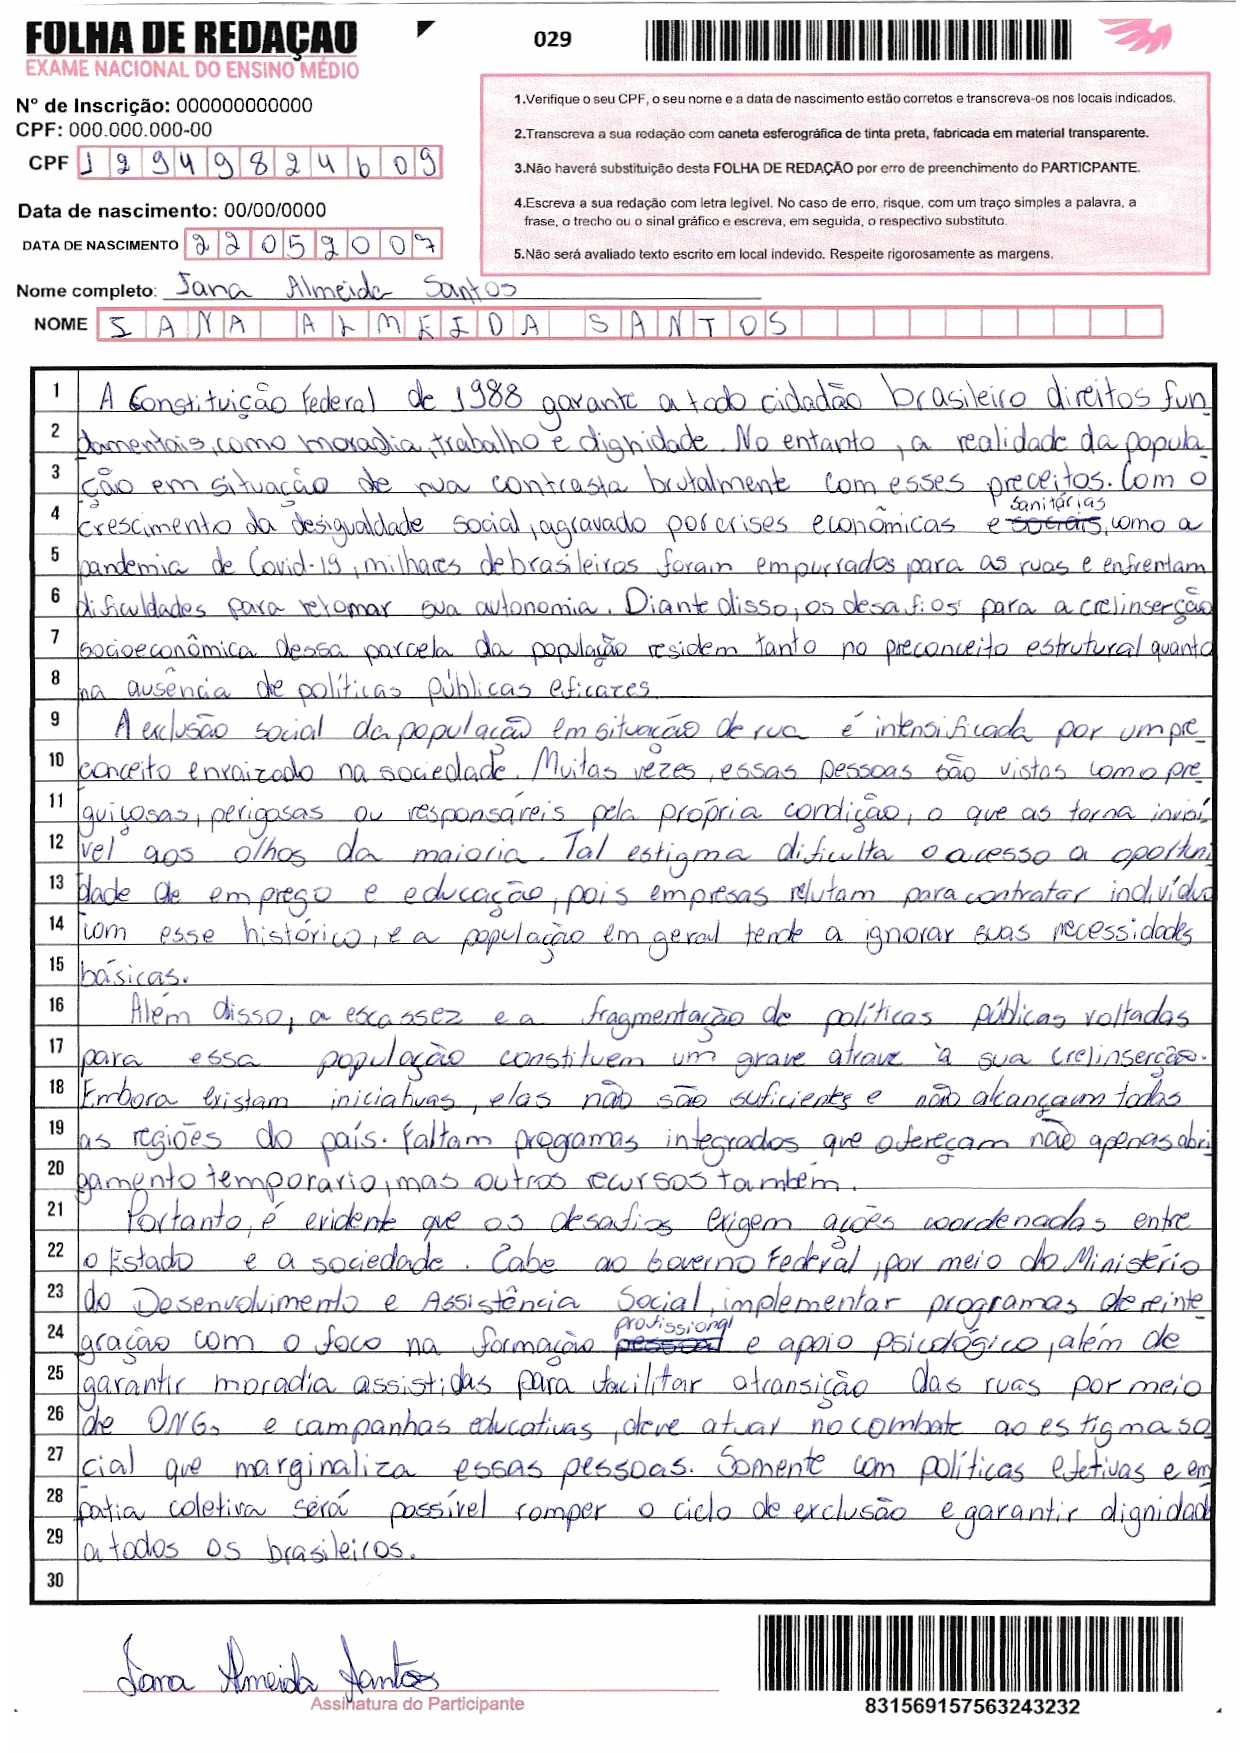 FOLHA DE REDAÇAO
029
EXAME NACIONAL DO ENSINO MÉDIO
Nº de Inscrição: 000000000000
CPF: 000.000.000-00
CPF 12949824609
Data de nascimento: 00/00/0000
DATA DE NASCIMENTO 22052007
1.Verifique o seu CPF, o seu nome e a data de nascimento estão corretos e transcreva-os nos locais indicados.
2.Transcreva a sua redação com caneta esferográfica de tinta preta, fabricada em material transparente.
3.Não haverá substituição desta FOLHA DE REDAÇÃO por erro de preenchimento do PARTICPANTE.
4.Escreva a sua redação com letra legível. No caso de erro, risque, com um traço simples a palavra, a
frase, o trecho ou o sinal gráfico e escreva, em seguida, o respectivo substituto.
5.Não será avaliado texto escrito em local indevido. Respeite rigorosamente as margens.
Nome completo: Iana Almeida Santos
NOME IANA ALMEIDA SANTOS
1 A Constituição Federal de 1988 garante a todo cidadão brasileiro direitos fun
2 damentais, como moradia, trabalho e dignidade. No entanto, a realidade da popula
3 ção em situação de rua contrasta brutalmente com esses preceitos. Com o
4 crescimento da desigualdade social, agravado por crises econômicas e sociais sanitárias, como a
5 pandemia de Covid-19, milhares de brasileiros foram empurrados para as ruas e enfrentam
6 dificuldades para retomar sua autonomia. Diante disso, os desafios para a (re)inserção
7 socioeconômica dessa parcela da população residem tanto no preconceito estrutural quanto
8 na ausência de políticas públicas eficazes.
9 A exclusão social da população em situação de rua é intensificada por um pre
10 conceito enraizado na sociedade. Muitas vezes, essas pessoas são vistas como pre
11 guiçosas, perigosas ou responsáveis pela própria condição, o que as torna invisí
12 vel aos olhos da maioria. Tal estigma dificulta o acesso a oportuni
13 dade de emprego e educação, pois empresas relutam para contratar indivíduo
14 com esse histórico, e a população em geral tende a ignorar suas necessidades
15 básicas.
16 Além disso, a escassez e a fragmentação de políticas públicas voltadas
17 para essa população constituem um grave atrave à sua (re)inserção.
18 Embora existam iniciativas, elas não são suficientes e não alcançam todas
19 as regiões do país. Faltam programas integrados que ofereçam não apenas abri
20 gamento temporário, mas outros recursos também.
21 Portanto, é evidente que os desafios exigem ações coordenadas entre
22 o Estado e a sociedade. Cabe ao Governo Federal, por meio do Ministério
23 do Desenvolvimento e Assistência Social, implementar programas de reinte
24 gração com o foco na formação pessoal profissional e apoio psicológico, além de
25 garantir moradia assistidas para facilitar a transição das ruas por meio
26 de ONGs e campanhas educativas, deve atuar no combate ao estigma so
27 cial que marginaliza essas pessoas. Somente com políticas efetivas e em
28 patia coletiva será possível romper o ciclo de exclusão e garantir dignidade
29 a todos os brasileiros.
30
Iana Almeida Santos
Assinatura do Participante
831569157563243232